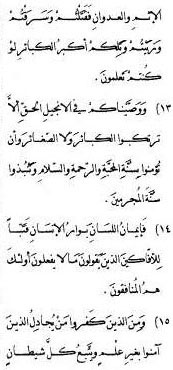 الإثم والعدوان فقتلتم وسرقتم
وزنيتم وتلكم أكبر الكبائر لو
كنتم تعلمون.
(١٣) ووصيناكم في الإنجيل الحق ألا
تركبوا الكبائر ولا الصغائر وأن
تؤمنوا بسنة المحبة والرحمة والسلام وتنبذوا
سنة المجرمين.
(١٤) فإيمان اللسان بوار الإنسان فتبا
للأفاكين الذين يقولون ما لا يفعلون أولئك
هم المنافقون.
(١٥) ومن الذين كفروا من يجادل الذين
آمنوا بغير علم ويتبع كل شيطان